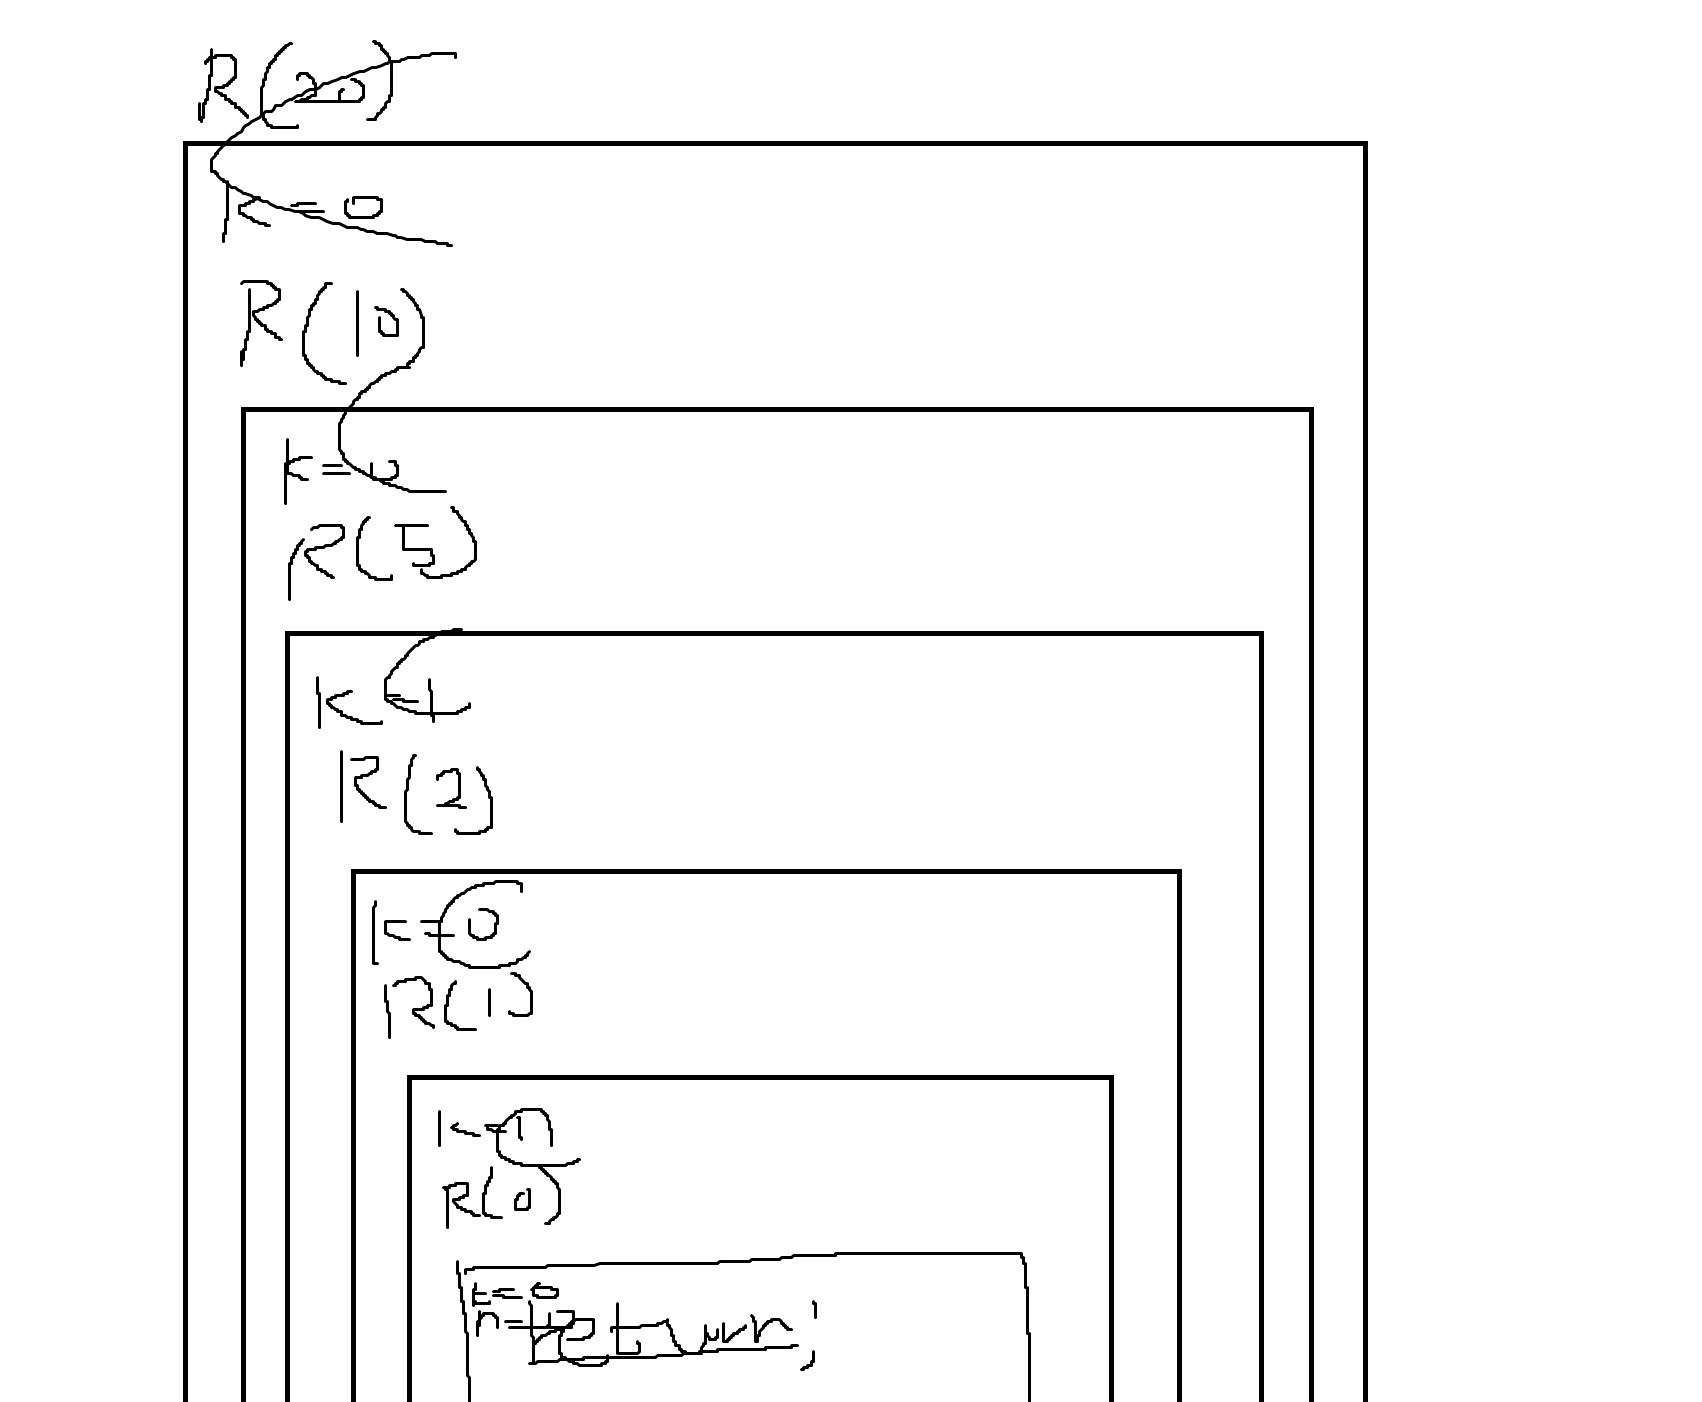 R(20)
K=0
R(10)
K=0
R(5)
K=1
R(2)
K=0
R(1)
K=1
R(0)
K=0
n=
return;